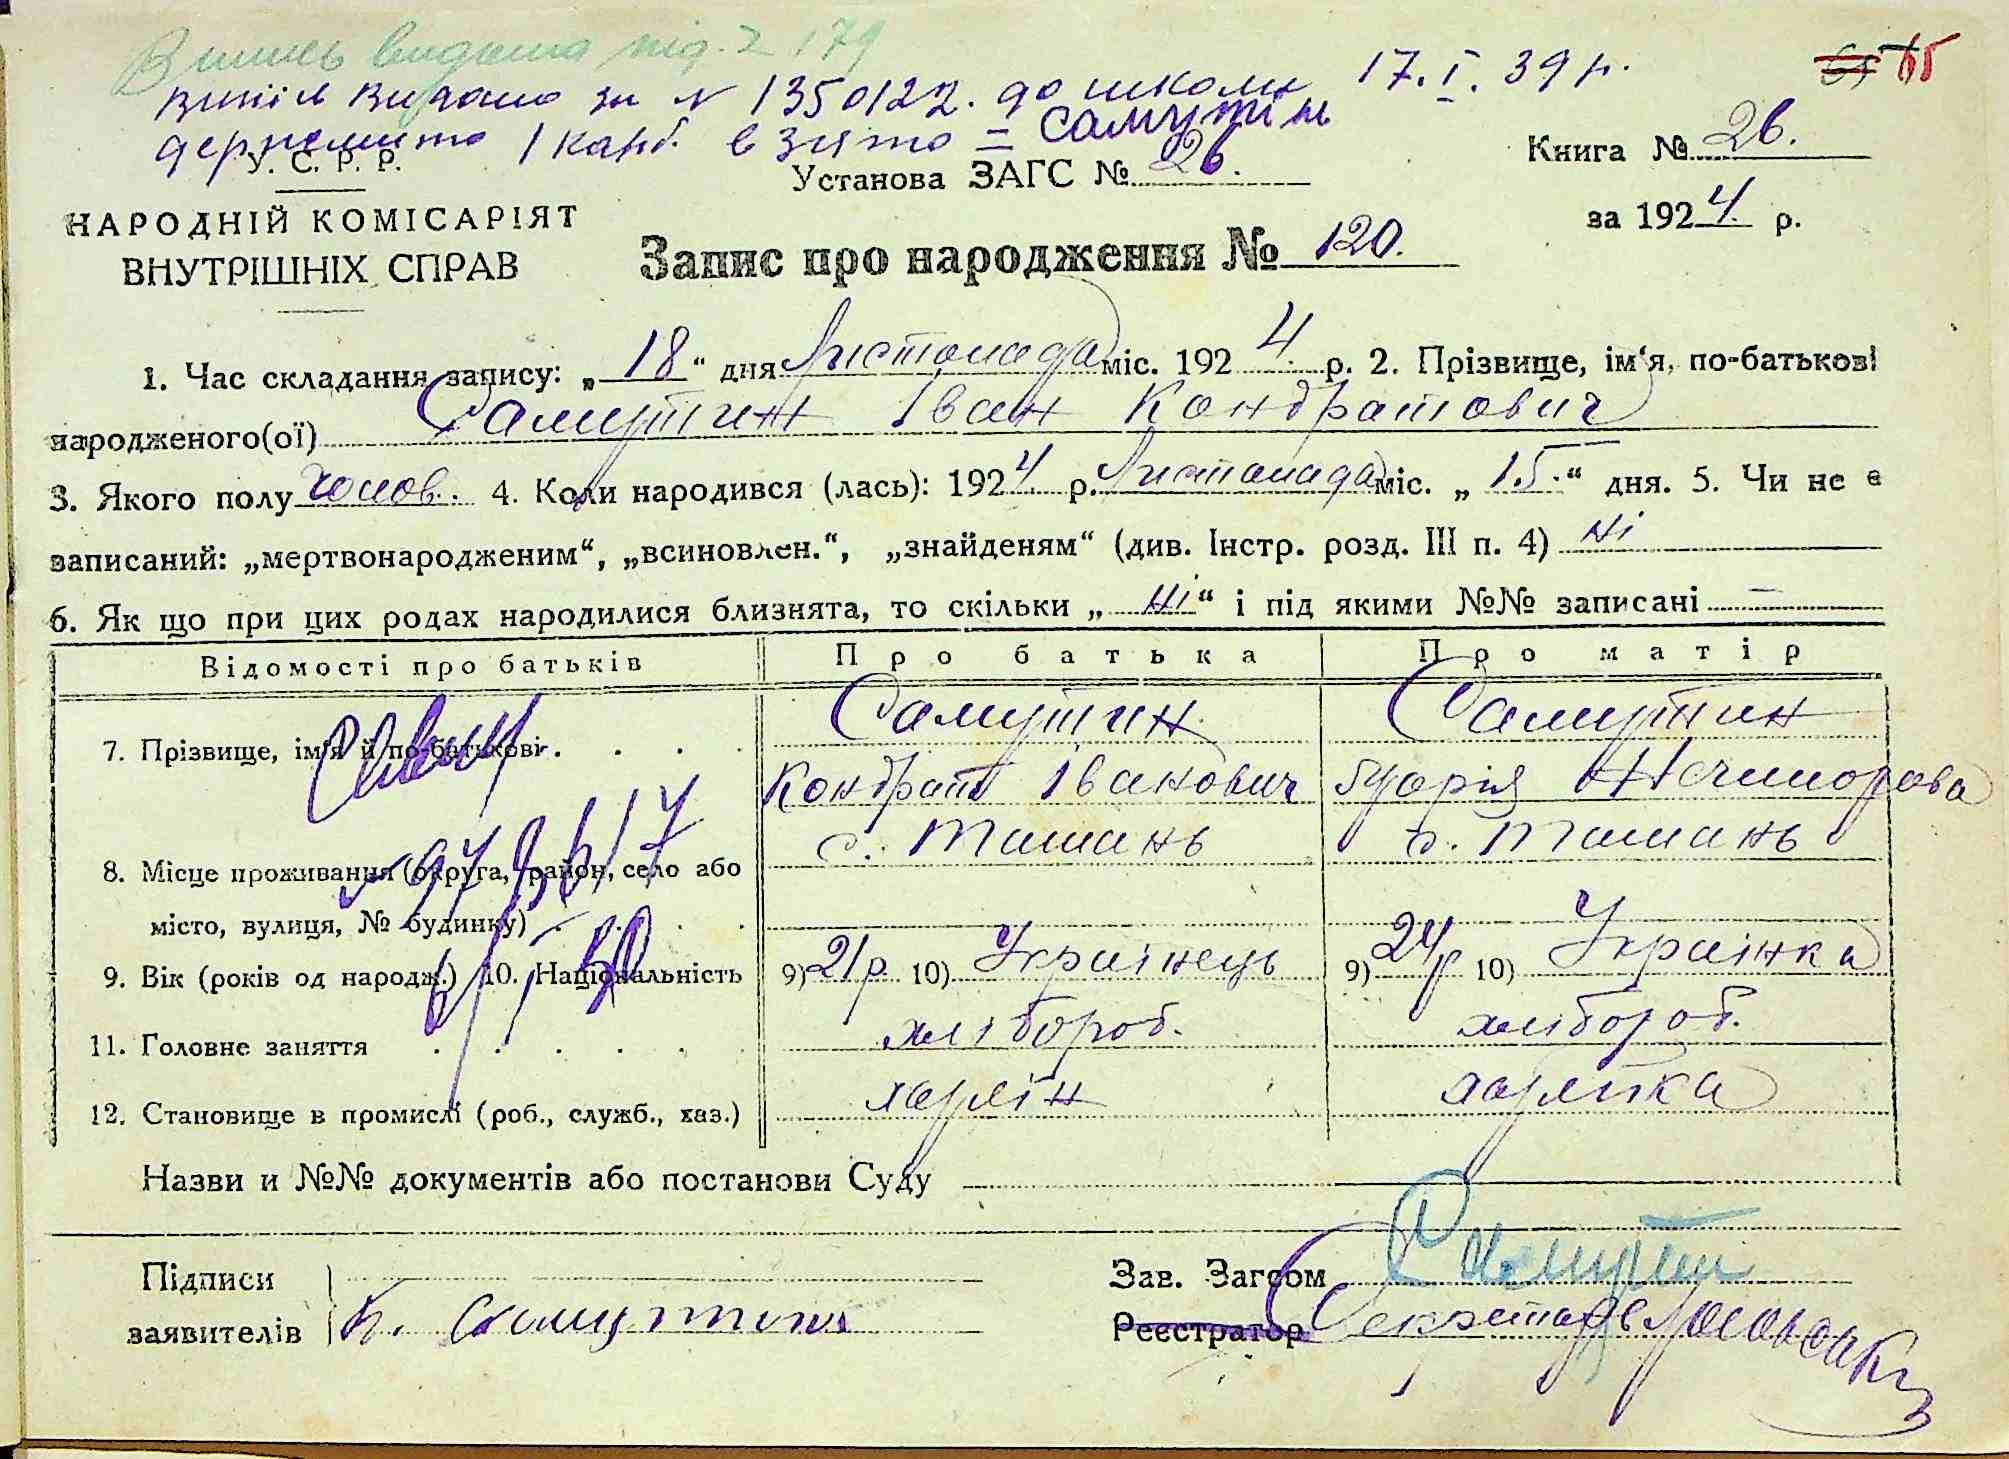 Випись видана під. № 179
випись видано за № 1350122. до школи 17.I.39 р.
держмито 1 карб. взято = Самутін
65
У. С. Р. Р.
Установа ЗАГС № 26.
Книга № 26.
за 1924 р.
НАРОДНІЙ КОМІСАРІЯТ
ВНУТРІШНІХ СПРАВ
Запис про народження № 120.
1. Час складання запису: „18“ дня Листопада міс. 1924. р. 2. Прізвище, ім‘я, по-батькові
народженого(ої) Самутин Іван Кондратович
3. Якого полу чолов. 4. Коли народився (лась): 1924 р. Листопада міс. „15.“ дня. 5. Чи не є
записаний: „мертвонародженим“, „всиновлен.“, „знайденям“ (див. Інстр. розд. III п. 4) ні
6. Як що при цих родах народилися близнята, то скільки „ні“ і під якими №№ записані —
Відомості про батьків Про батька Про матір
7. Прізвище, ім'я й по-батькові Самутин Самутин
Кондрат Іванович Нечипорова
8. Місце проживання (округа, район, село або с. Ташань с. Ташань
місто, вулиця, № будинку)
9. Вік (років од народж.) 10. Національність 9) 21 р. 10) Українець 9) 24 р 10) Українка
11. Головне заняття хлібороб. хлібороб.
12. Становище в промислі (роб., служб., хаз.)
Назви и №№ документів або постанови Суду
Підписи
заявителів К. Самутин
Зав. Загсом
Реєстратор Секретар